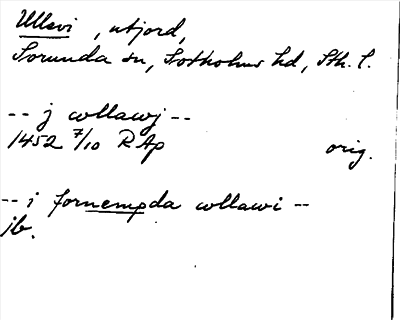 Ullevi, utjord,
Sorunda sn, Sotholms hd, Sth. l.
-- j wllawj --
1452 7/10 RAp orig.
-- i fornempda wllawi --
ib.